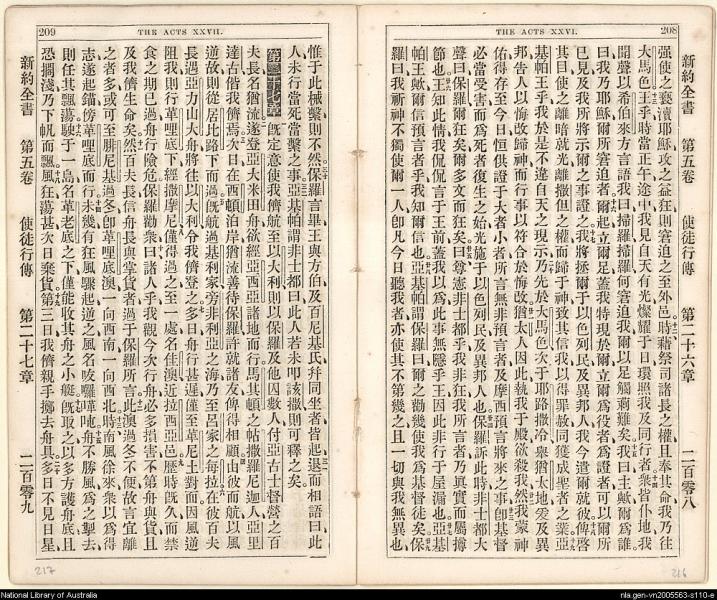 208
THE ACTS XXVI.
新約全書 第五卷 使徒行傳 第二十六章 二百零八
强使之褻瀆耶穌攻之益狂則窘迫之至外邑時藉祭司諸長之權且奉其命我乃往
大馬色王乎時當正午途中我見自天有光燦耀于日環照我及同行者衆皆仆地我
聞聲以希伯來方言語我曰掃羅掃羅何窘迫我爾以足觸刺難矣我曰主歟爾爲誰
曰我乃耶穌爾所窘迫者爾起立爾足蓋我特現於爾立爾爲役者爲證者可以爾所
已見及我所將示爾之事證之我將拯爾于以色列民及異邦人我今遣爾就彼俾啓
其目使之離暗就光離撒但之權而歸于神致其信我以得罪赦同獲成聖者之業亞
基帕王乎我於是不違自天之現示乃先於大馬色次于耶路撒冷與猶太地爰及異
邦告人以悔改歸神而行事以符合於悔改猶太人因此執我于殿欲殺我然我蒙神
佑得存至今日恒供證于大者小者所言無非預言者及摩西預言將來之事卽基督
必當受害而爲死者復生之始光施于以色列民及異邦人也保羅訴此時非士都大
聲曰保羅爾狂矣爾多文而狂矣曰尊憲非士都乎我非狂我所言者乃眞實而屬撙
節也王知此情我侃侃言于王前蓋我以爲此事無隱乎王因此非行于屋漏也亞基
帕王歟爾信預言者乎我知爾信也亞基帕謂保羅曰爾之勸幾使我爲基督徒矣保
羅曰我祈神不獨使爾一人卽凡今日聽我者亦使其不第幾之且一切與我無異也
216
THE ACTS XXVII.
209
惟于此械繫則不然保羅言畢王與方伯及百尼基氏幷同坐者皆起退而相語曰此
人未行當死當繫之事亞基帕謂非士都曰此人若未叩該撒則可釋之矣
第二十七章 旣定意使我儕航至以大利則以保羅及他囚數人付亞古士督營之百
夫長名猶流遂登亞大米田舟欲經亞西亞諸地而行馬其頓之帖撒羅尼迦人亞里
達古偕我儕焉次日在西頓泊岸猶流善待保羅許就諸友俾得相顧由彼而航以風
逆故則從居比路下而過旣航過基利家旁非利亞之海乃至呂家之每拉在彼百夫
長遇亞力山大舟將往以大利令我儕登之多日舟行甚遲僅至革尼土對面因風逆
阻我則行革哩底下經撒摩尼僅得過之至一處名佳澳近拉西亞邑歷時旣久而禁
食之期已過舟行險危保羅勸衆曰諸人乎我觀今次行舟必多損害不第舟與貨且
及我儕生命矣然百夫長信舟長與掌貨者過于保羅所言此澳過冬不便故言宜離
之者多或可至腓尼基過冬卽革哩底澳一向西南一向西北時南風徐來衆以爲得
志遂起錨傍革哩底而行未幾有狂風驟起逆之風名友囉嗶吨舟不勝風爲之掣去
則任其飄蕩駛于一島名革老底之下僅能收其舟之小艇旣取之以多方護舟底且
恐擱淺乃下帆而飄風狂蕩甚次日棄貨第三日我儕親手擲去舟具多日不見日星
新約全書 第五卷 使徒行傳 第二十七章 二百零九
217
National Library of Australia
nla.gen-vn2005563-s110-e